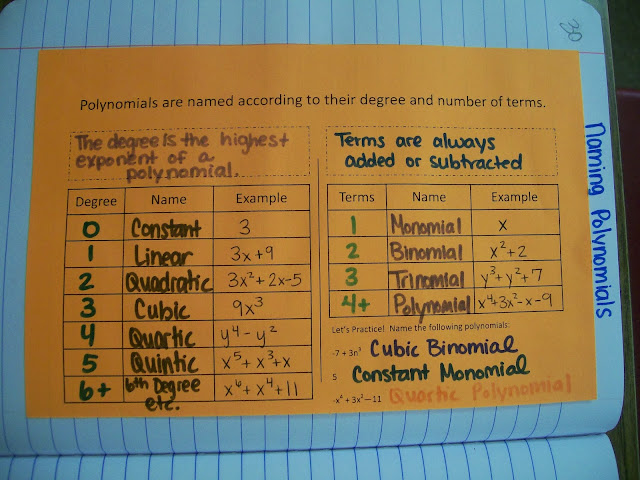 Polynomials are named according to their degree and number of terms.
The degree is the highest
exponent of a
polynomial.
Degree Name Example
0 Constant 3
1 Linear 3x+9
2 Quadratic 3x²+2x-5
3 Cubic 9x³
4 Quartic y⁴-y²
5 Quintic x⁵+x³+x
6+ 6th Degree etc. x⁶+x⁴+11
Terms are always
added or subtracted
Terms Name Example
1 Monomial x
2 Binomial x²+2
3 Trinomial y³+y²+7
4+ Polynomial x⁴+3x²-x-9
Let's Practice! Name the following polynomials.
-7 + 3n³ Cubic Binomial
5 Constant Monomial
-x⁴ + – 11 Quartic Polynomial
Naming Polynomials